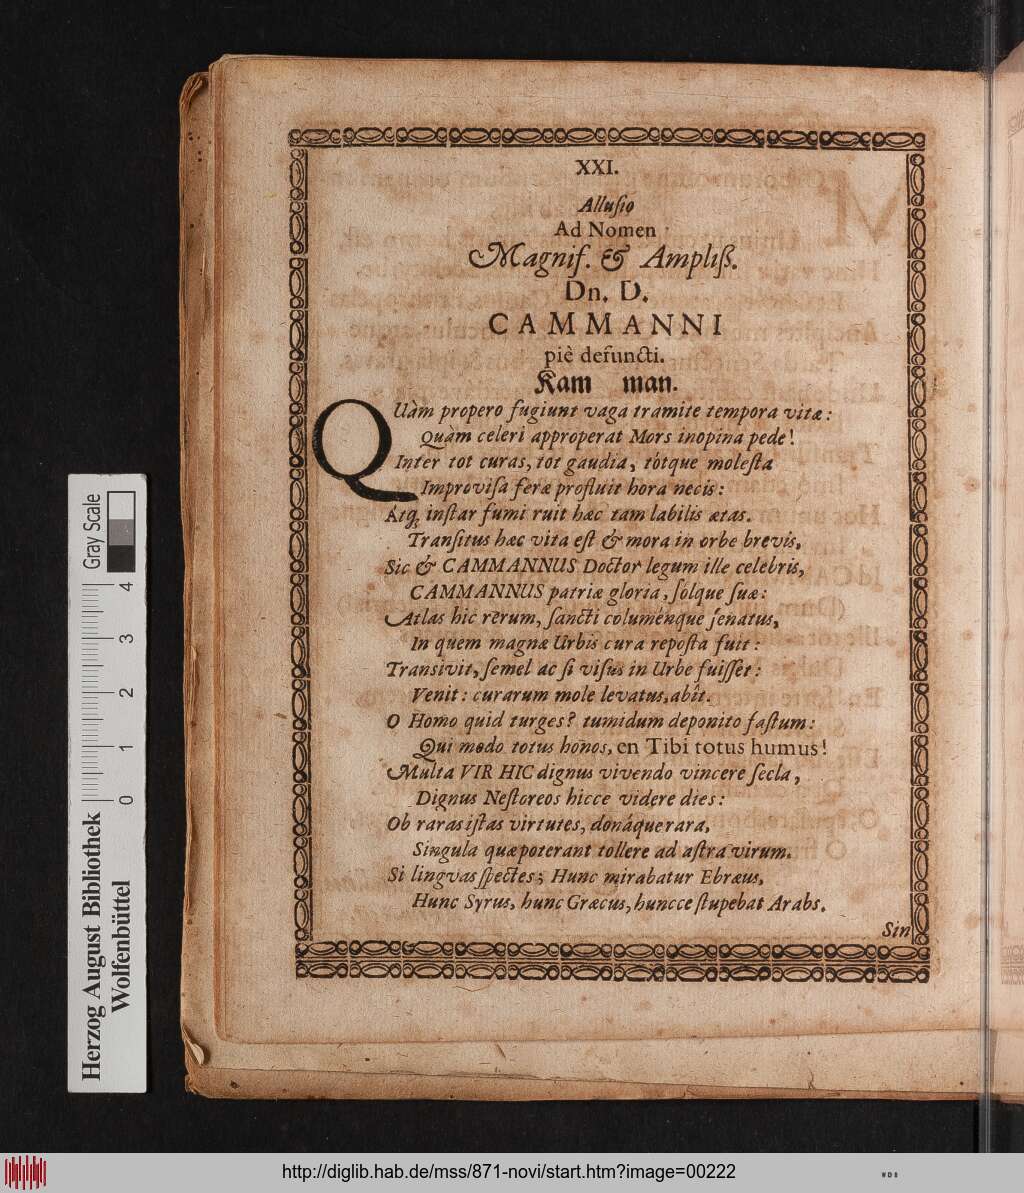 XXI.
Allusio
Ad Nomen
Magnif. & Ampliß.
Dn. D.
CAMMANNI
piè defuncti.
Kam man.
QUàm propero fugiunt vaga tramite tempora vitæ:
Quàm celeri approperat Mors inopina pede!
Inter tot curas, tot gaudia, tótque molesta
Improvisa feræ profluit hora necis:
Atq; instar fumi ruit hæc tam labilis ætas.
Transitus hæc vita est & mora in orbe brevis,
Sic & CAMMANNUS Doctor legum ille celebris,
CAMMANNUS patriæ gloria, sólque suæ:
Atlas hic rerum, sancti columénque senatus,
In quem magnæ Urbis cura reposta fuit:
Transivit, semel ac si visus in Urbe fuisset:
Venit: curarum mole levatus, abît.
O Homo quid turges? tumidum deponito fastum:
Qui modo totus honos, en Tibi totus humus!
Multa VIR HIC dignus vivendo vincere secla,
Dignus Nestoreos hicce videre dies:
Ob raras istas virtutes, donáque rara,
Singula quæ poterant tollere ad astra virum.
Si lingvas spectes; Hunc mirabatur Ebræus,
Hunc Syrus, hunc Græcus, huncce stupebat Arabs.
Sin
Gray Scale
4
3
2
1
0
Herzog August Bibliothek
Wolfenbüttel
http://diglib.hab.de/mss/871-novi/start.htm?image=00222
WDB